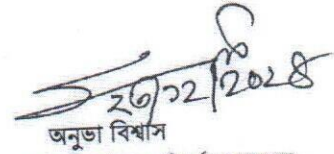 ২৩/১২/২০২৪
অনুভা বিশ্বাস